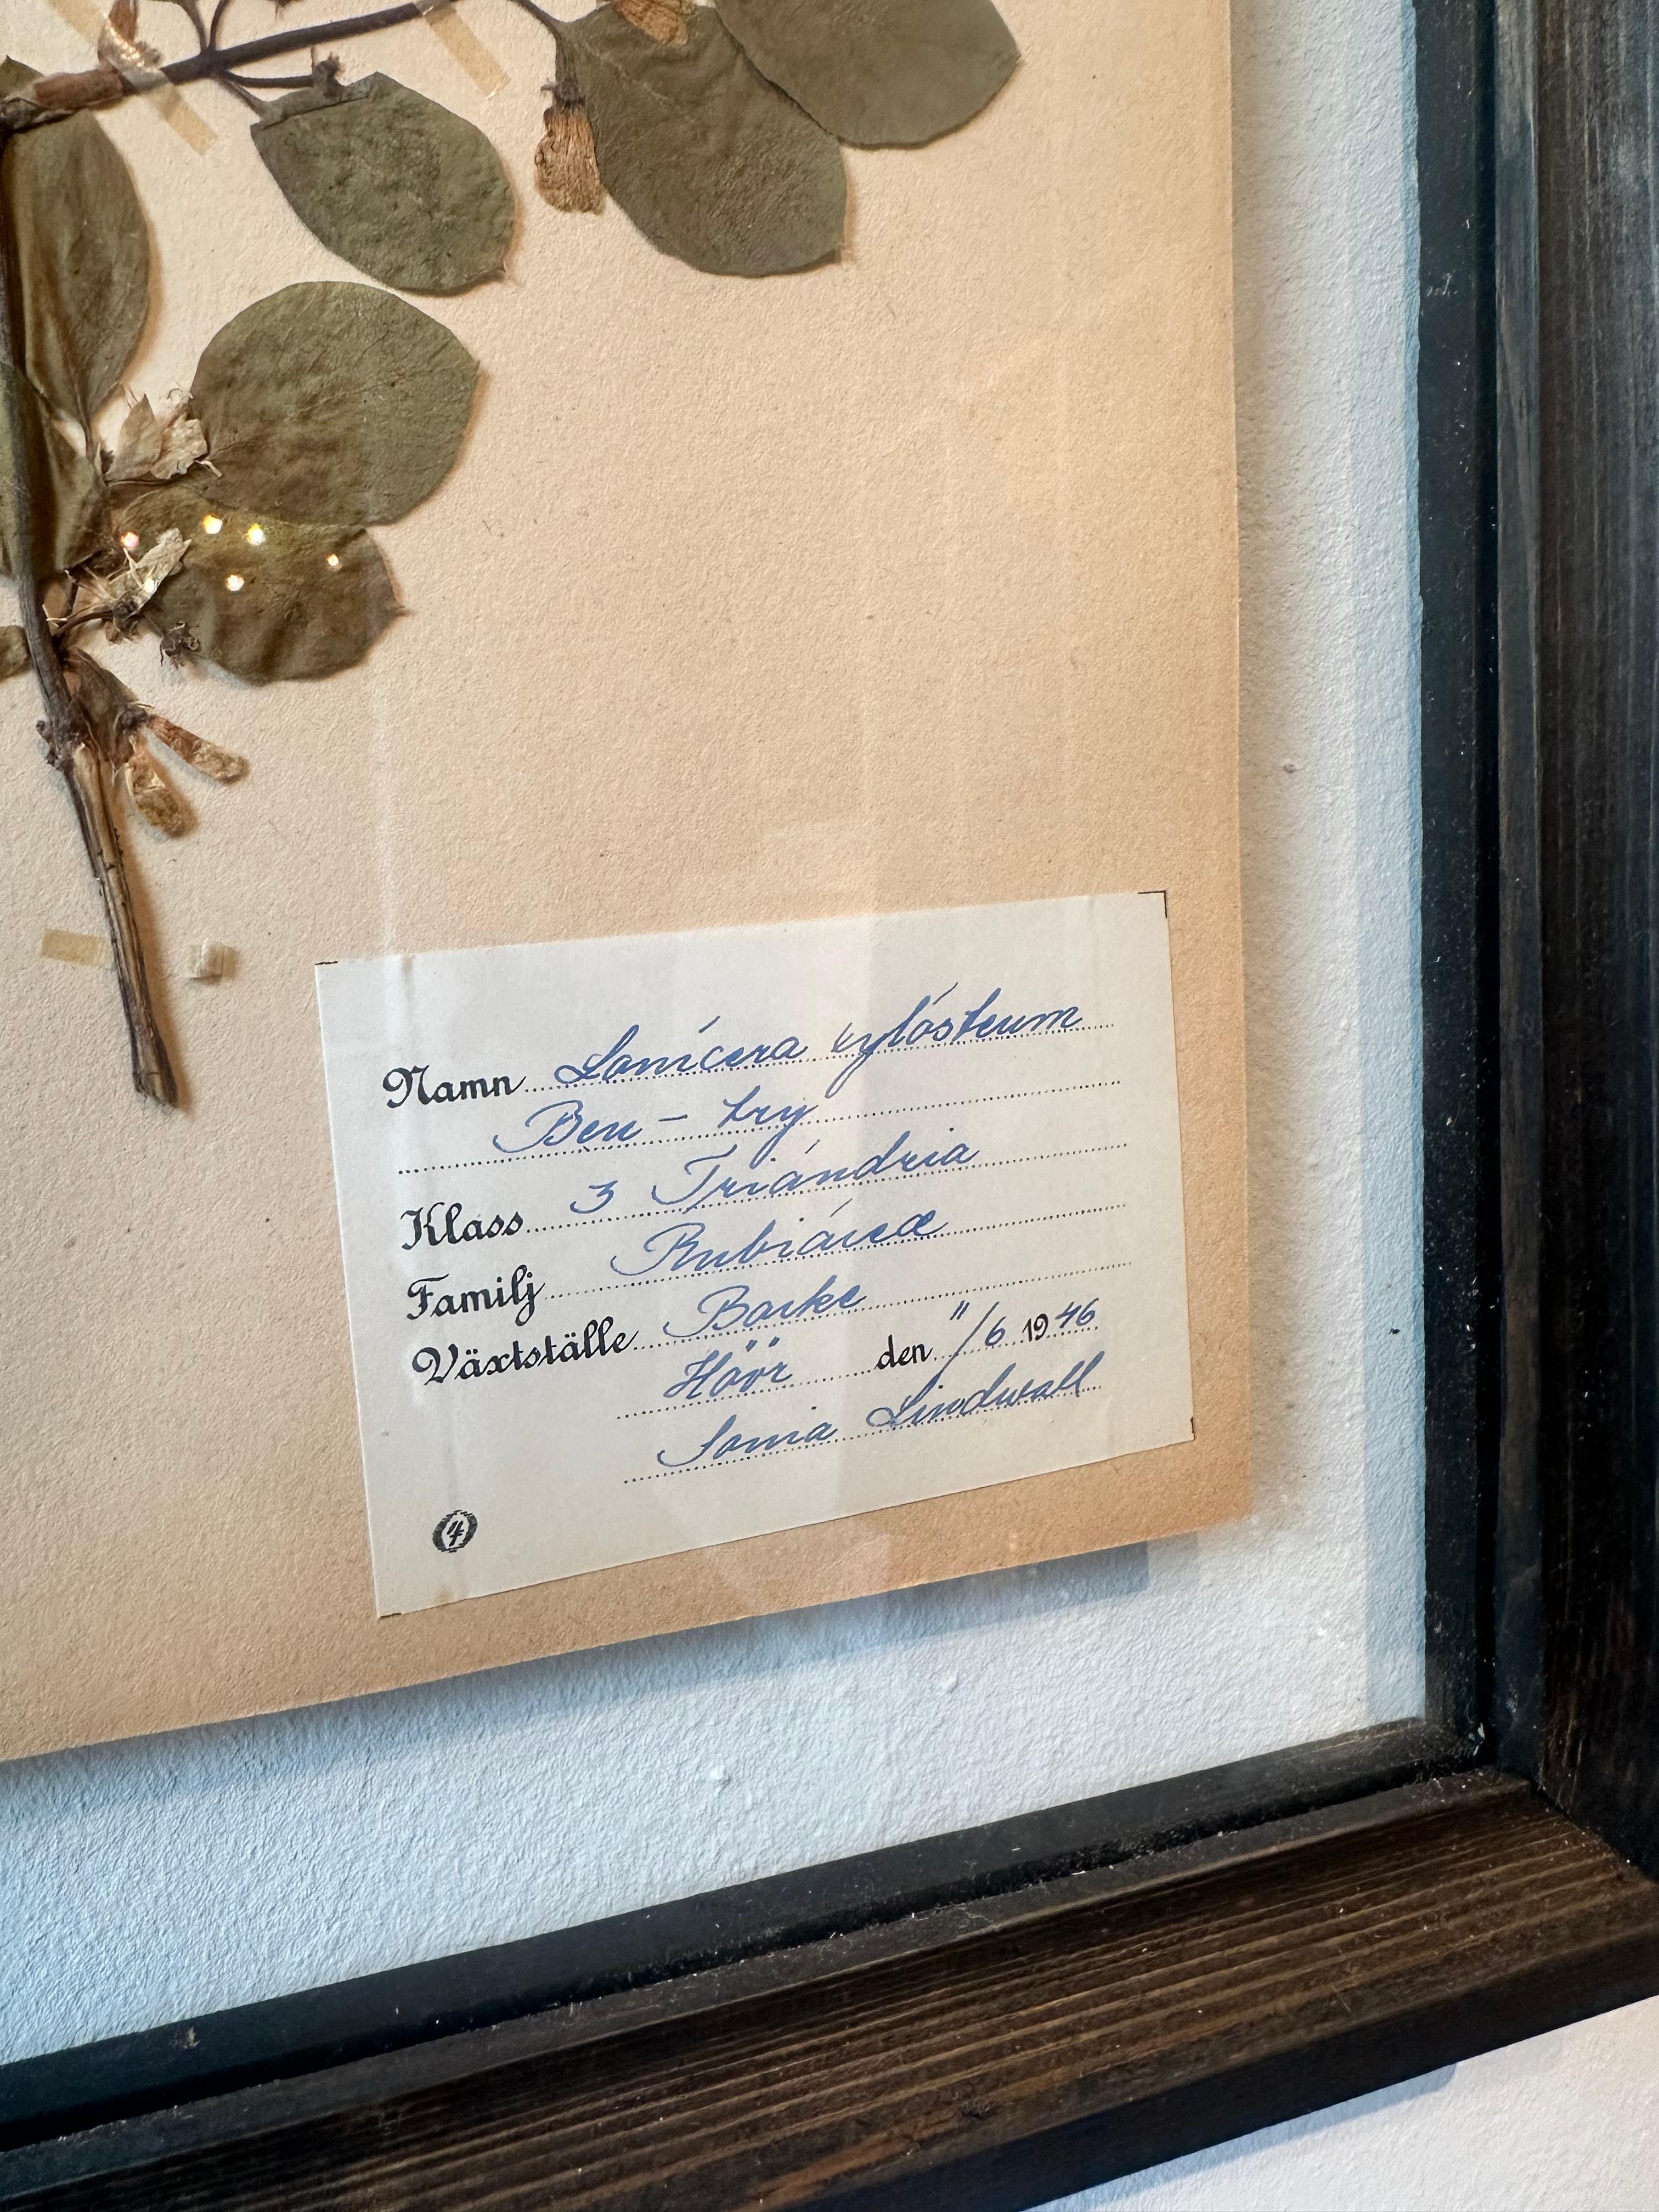 Namn Lonícera xylósteum
Ben-try
Klass 3 Triándria
Familj Rubiáceæ
Växtställe
Höör den 11/6 1946
Sonia Lindwall
4